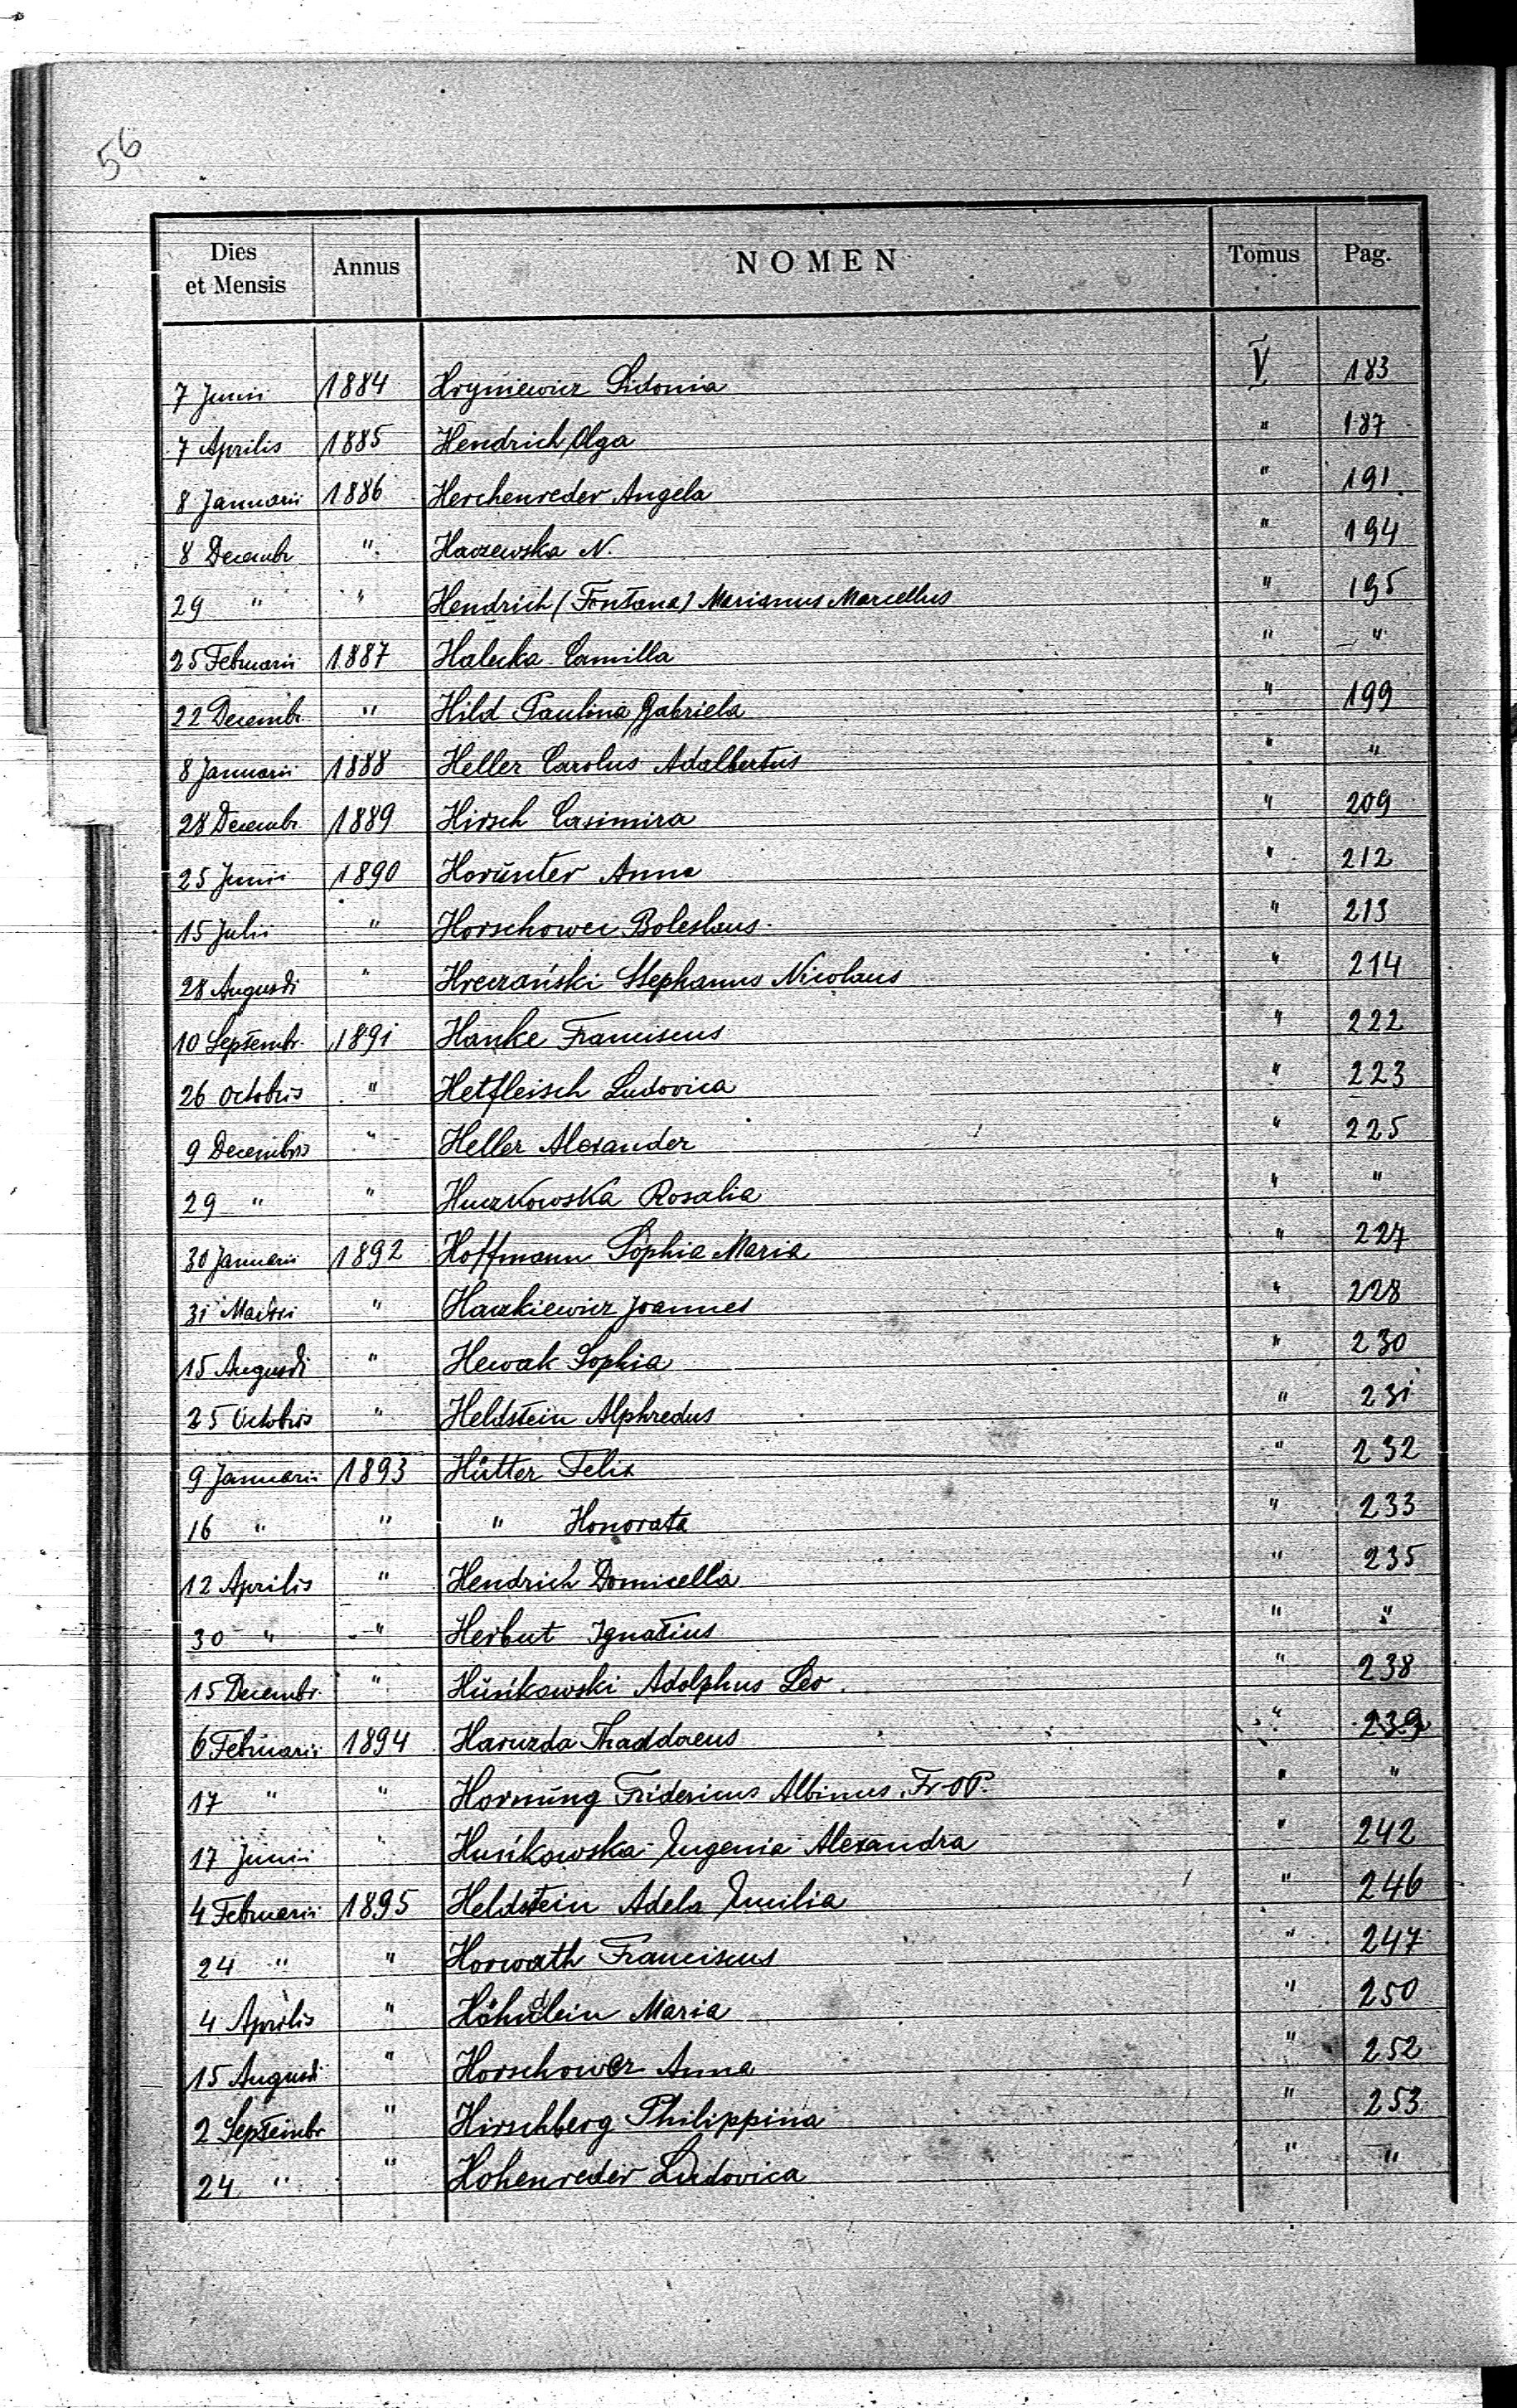 56
Dies et Mensis Annus NOMEN Tomus Pag.
7 Junii 1884 Hryniewicz Sidonia V 183
7 Aprilis 1885 Hendrich Olga " 187
8 Januarii 1886 Herchenreder Angela " 191
8 Decembr " Haczewska N. " 194
29 " " Hendrich (Fontana) Marianus Marcellus " 195
25 Februarii 1887 Halecka Camilla " "
22 Decembr. " Hild Paulina Gabriela " 199
8 Januarii 1888 Heller Carolus Adalbertus " "
28 Decembr. 1889 Hirsch Casimira " 209
25 Junii 1890 Horunter Anna " 212
15 Julii " Horschowei Boleslaus " 213
28 Augusti " Hreczański Stephanus Nicolaus " 214
10 Septembr. 1891 Hanke Franciscus " 222
26 Octobris " Hetfleisch Ludovica " 223
9 Decembris " Heller Alexander " 225
29 " " Huczkowska Rosalia " "
30 Januarii 1892 Hoffmann Sophia Maria " 227
31 Martii " Haczkiewicz Joannes " 228
15 Augusti " Hewak Sophia " 230
25 Octobris " Heldstein Alphredus " 231
9 Januarii 1893 Hütter Felix " 232
16 " " " Honorata " 233
12 Aprilis " Hendrich Domicella " 235
30 " " Herbut Ignatius " "
15 Decembr. " Huńkowski Adolphus Leo " 238
6 Februarii 1894 Haruzda Thaddaeus " 239
17 " " Hornung Fridericus Albinus Fr. OP. " "
17 Junii " Huńkowska Eugenia Alexandra " 242
4 Februarii 1895 Heldstein Adela Emilia " 246
24 " " Horwath Franciscus " 247
4 Aprilis " Höhnlein Maria " 250
15 Augusti " Horschower Anna " 252
2 Septembr " Hirschberg Philippina " 253
24 " " Hohenreder Ludovica " "